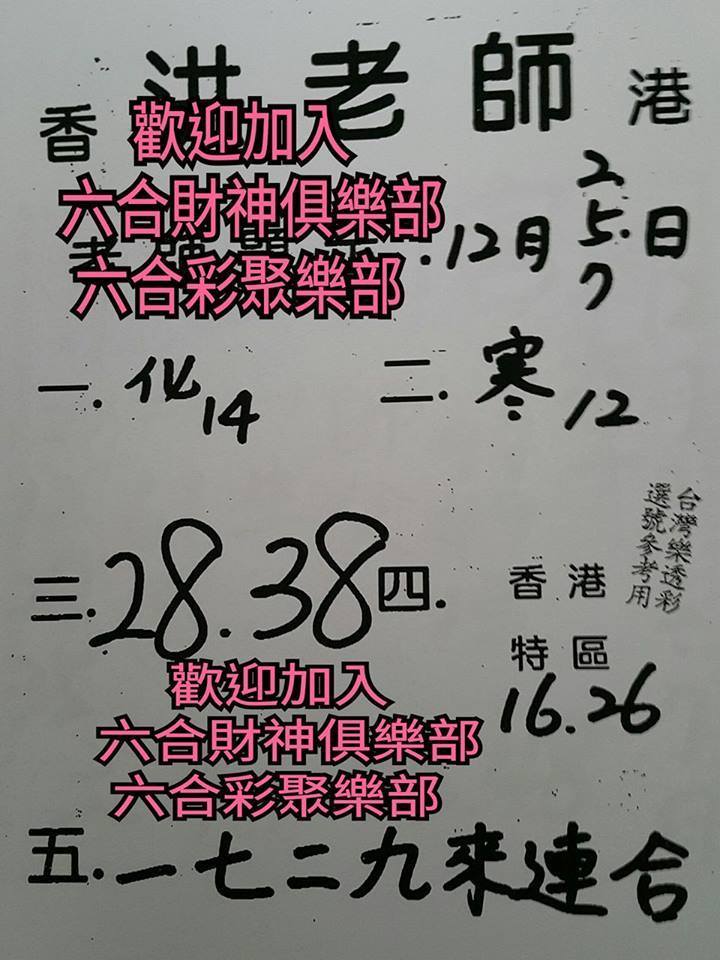 洪老師
香 港
歡迎加入
六合財神俱樂部
六合彩聚樂部
12月 2 5 7 日
一. 14
二. 寒 12
台灣樂透彩
選號參考用
三. 28.38
四. 香港
特區
16.26
歡迎加入
六合財神俱樂部
六合彩聚樂部
五. 一七二九來連合